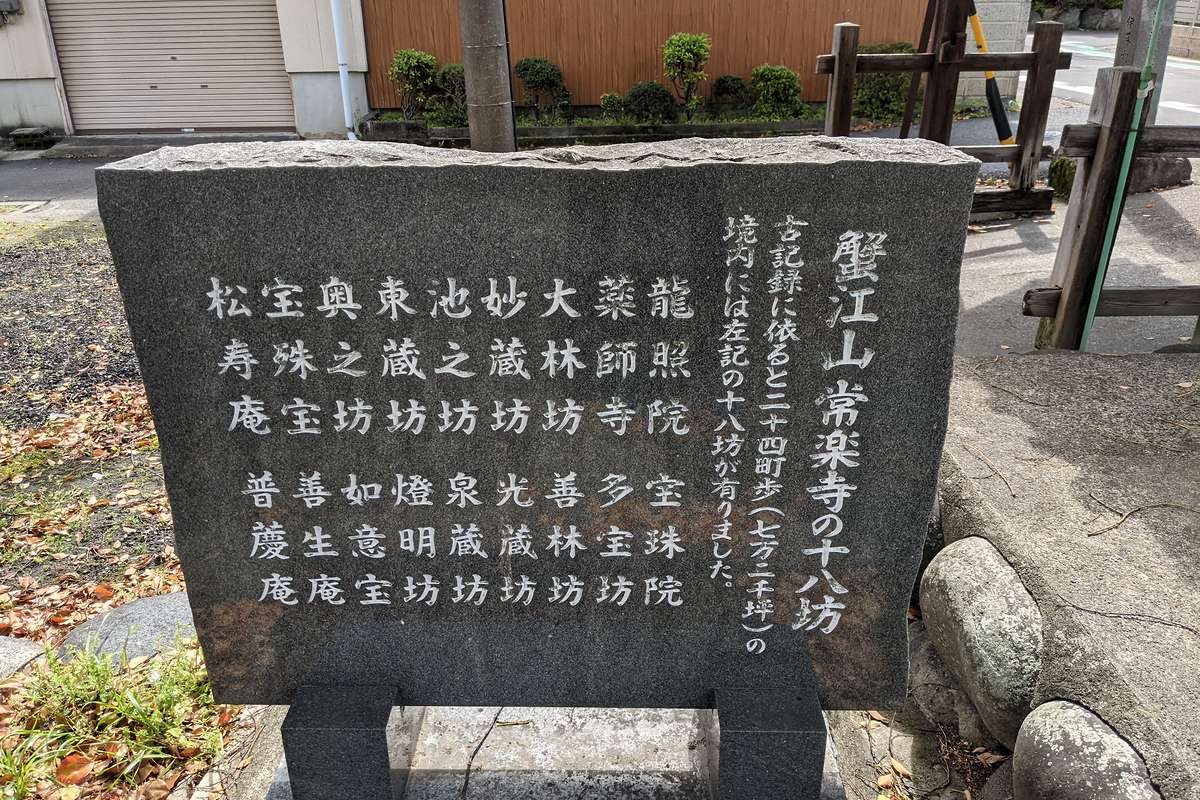 蟹江山常楽寺の十八坊
古記録に依ると二十四町歩(七万二千坪)の
境内には左記の十八坊が有りました。
龍照院 宝珠院
薬師寺 多宝坊
大林坊 善林坊
妙蔵坊 光蔵坊
池之坊 泉蔵坊
東蔵坊 燈明坊
奥之坊 如意宝
宝殊宝 善生庵
松寿庵 普慶庵